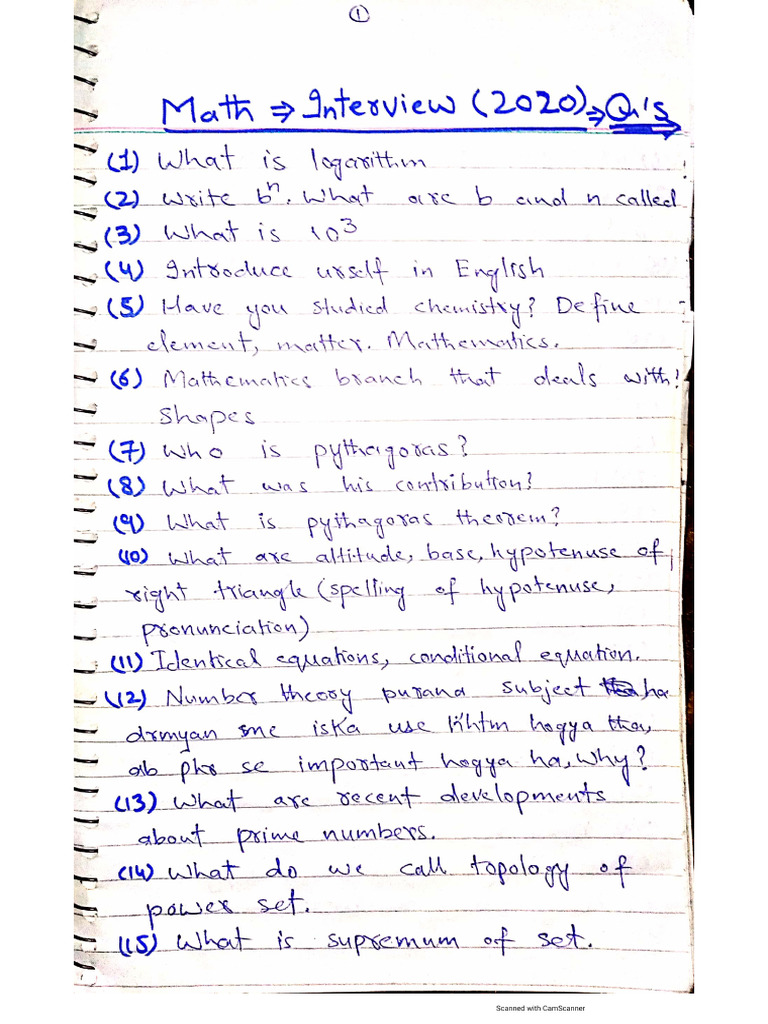 ①
Math ⇒ Interview (2020) ⇒ Qu's
(1) What is logarithm
(2) Write bⁿ. What are b and n called
(3) What is 10³
(4) Introduce urself in English
(5) Have you studied chemistry? Define
element, matter. Mathematics.
(6) Mathematics branch that deals with
shapes
(7) Who is pythagoras?
(8) What was his contribution?
(9) What is pythagoras theorem?
(10) What are altitude, base, hypotenuse of
right triangle (spelling of hypotenuse,
pronunciation)
(11) Identical equations, conditional equation.
(12) Number theory purana subject ha
drmyan me iska use khtm hogya tha,
ab phr se important hogya ha, why?
(13) What are recent developments
about prime numbers.
(14) What do we call topology of
power set.
(15) What is supremum of set.
Scanned with CamScanner